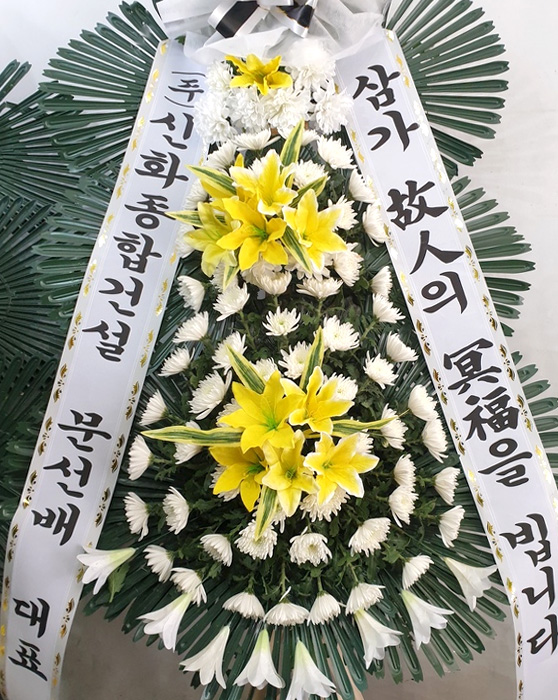 (주)신화종합건설 문선배 대표
삼가 故人의 冥福을 빕니다